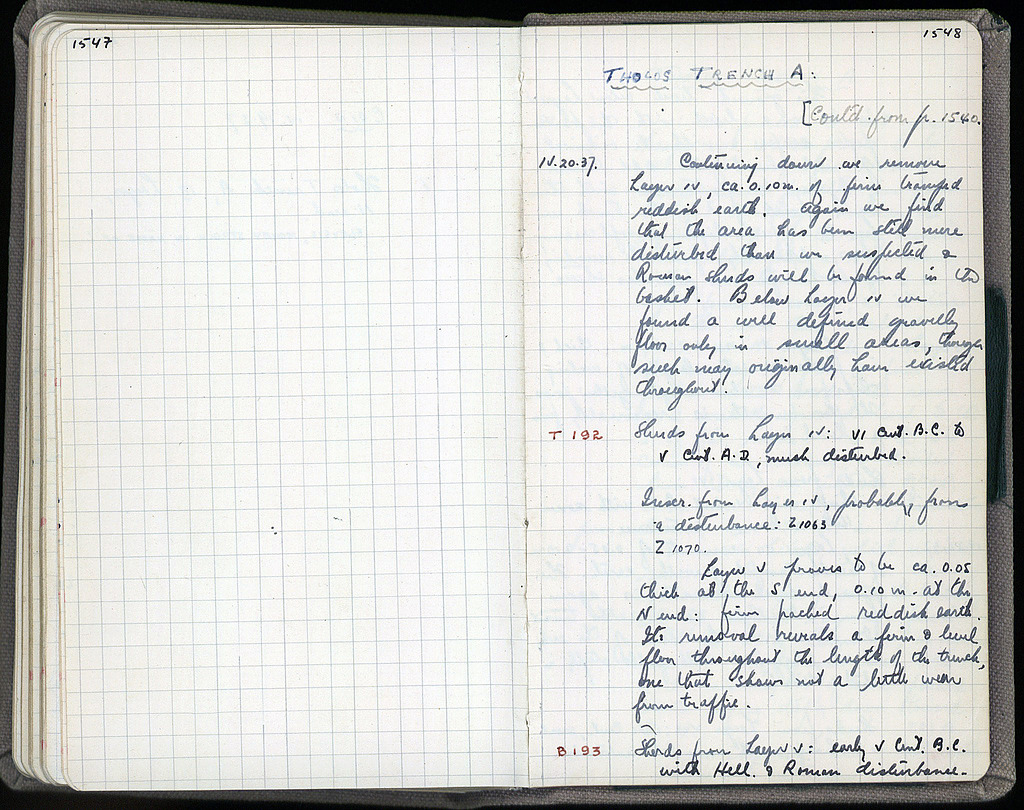 1547
1548
THOLOS TRENCH A:
[Cont'd. from p. 1540.
IV.20.37. Continuing down we remove
Layer IV, ca. 0.10 m. of firm tramped
reddish earth. Again we find
that the area has been still more
disturbed than we suspected &
Roman sherds will be found in the
basket. Below Layer IV we
found a well defined gravelly
floor only in small areas, though
such may originally have existed
throughout.
T 192 Sherds from Layer IV: VI Cent. B.C. to
V Cent. A.D., much disturbed.
Inscr. from Layer IV, probably from
a disturbance: Z 1063
Z 1070.
Layer V proves to be ca. 0.05
thick at the S end, 0.10 m. at the
N end: firm packed reddish earth.
Its removal reveals a firm & level
floor throughout the length of the trench,
one that shows not a little wear
from traffic.
B 193 Sherds from Layer V: early V Cent. B.C.
with Hell. & Roman disturbance.